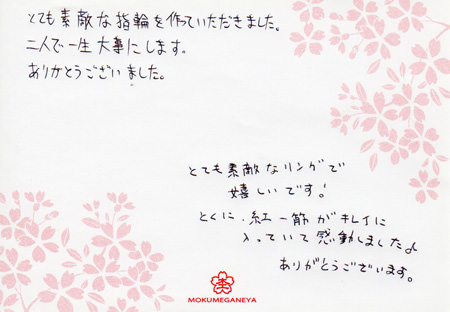 とても素敵な指輪を作っていただきました。
二人で一生大事にします。
ありがとうございました。
とても素敵なリングで
嬉しいです!
とくに、紅一筋がキレイに
入っていて感動しました♪
ありがとうございます。
杢
MOKUMEGANEYA